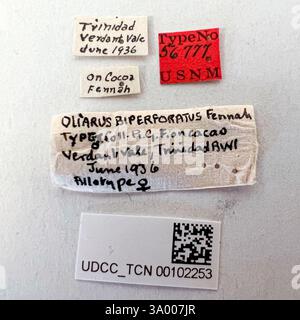 Trinidad
Verdant Vale
June 1936
TypeNo
56777
U S N M
on Cocoa
Fennah
OLIARUS BIPERFORATUS Fennah
TYPE Coll. R.G.F. on cacao
Verdant Vale, Trinidad BWI
June 1936
Allotype ♀
UDCC_TCN 00102253